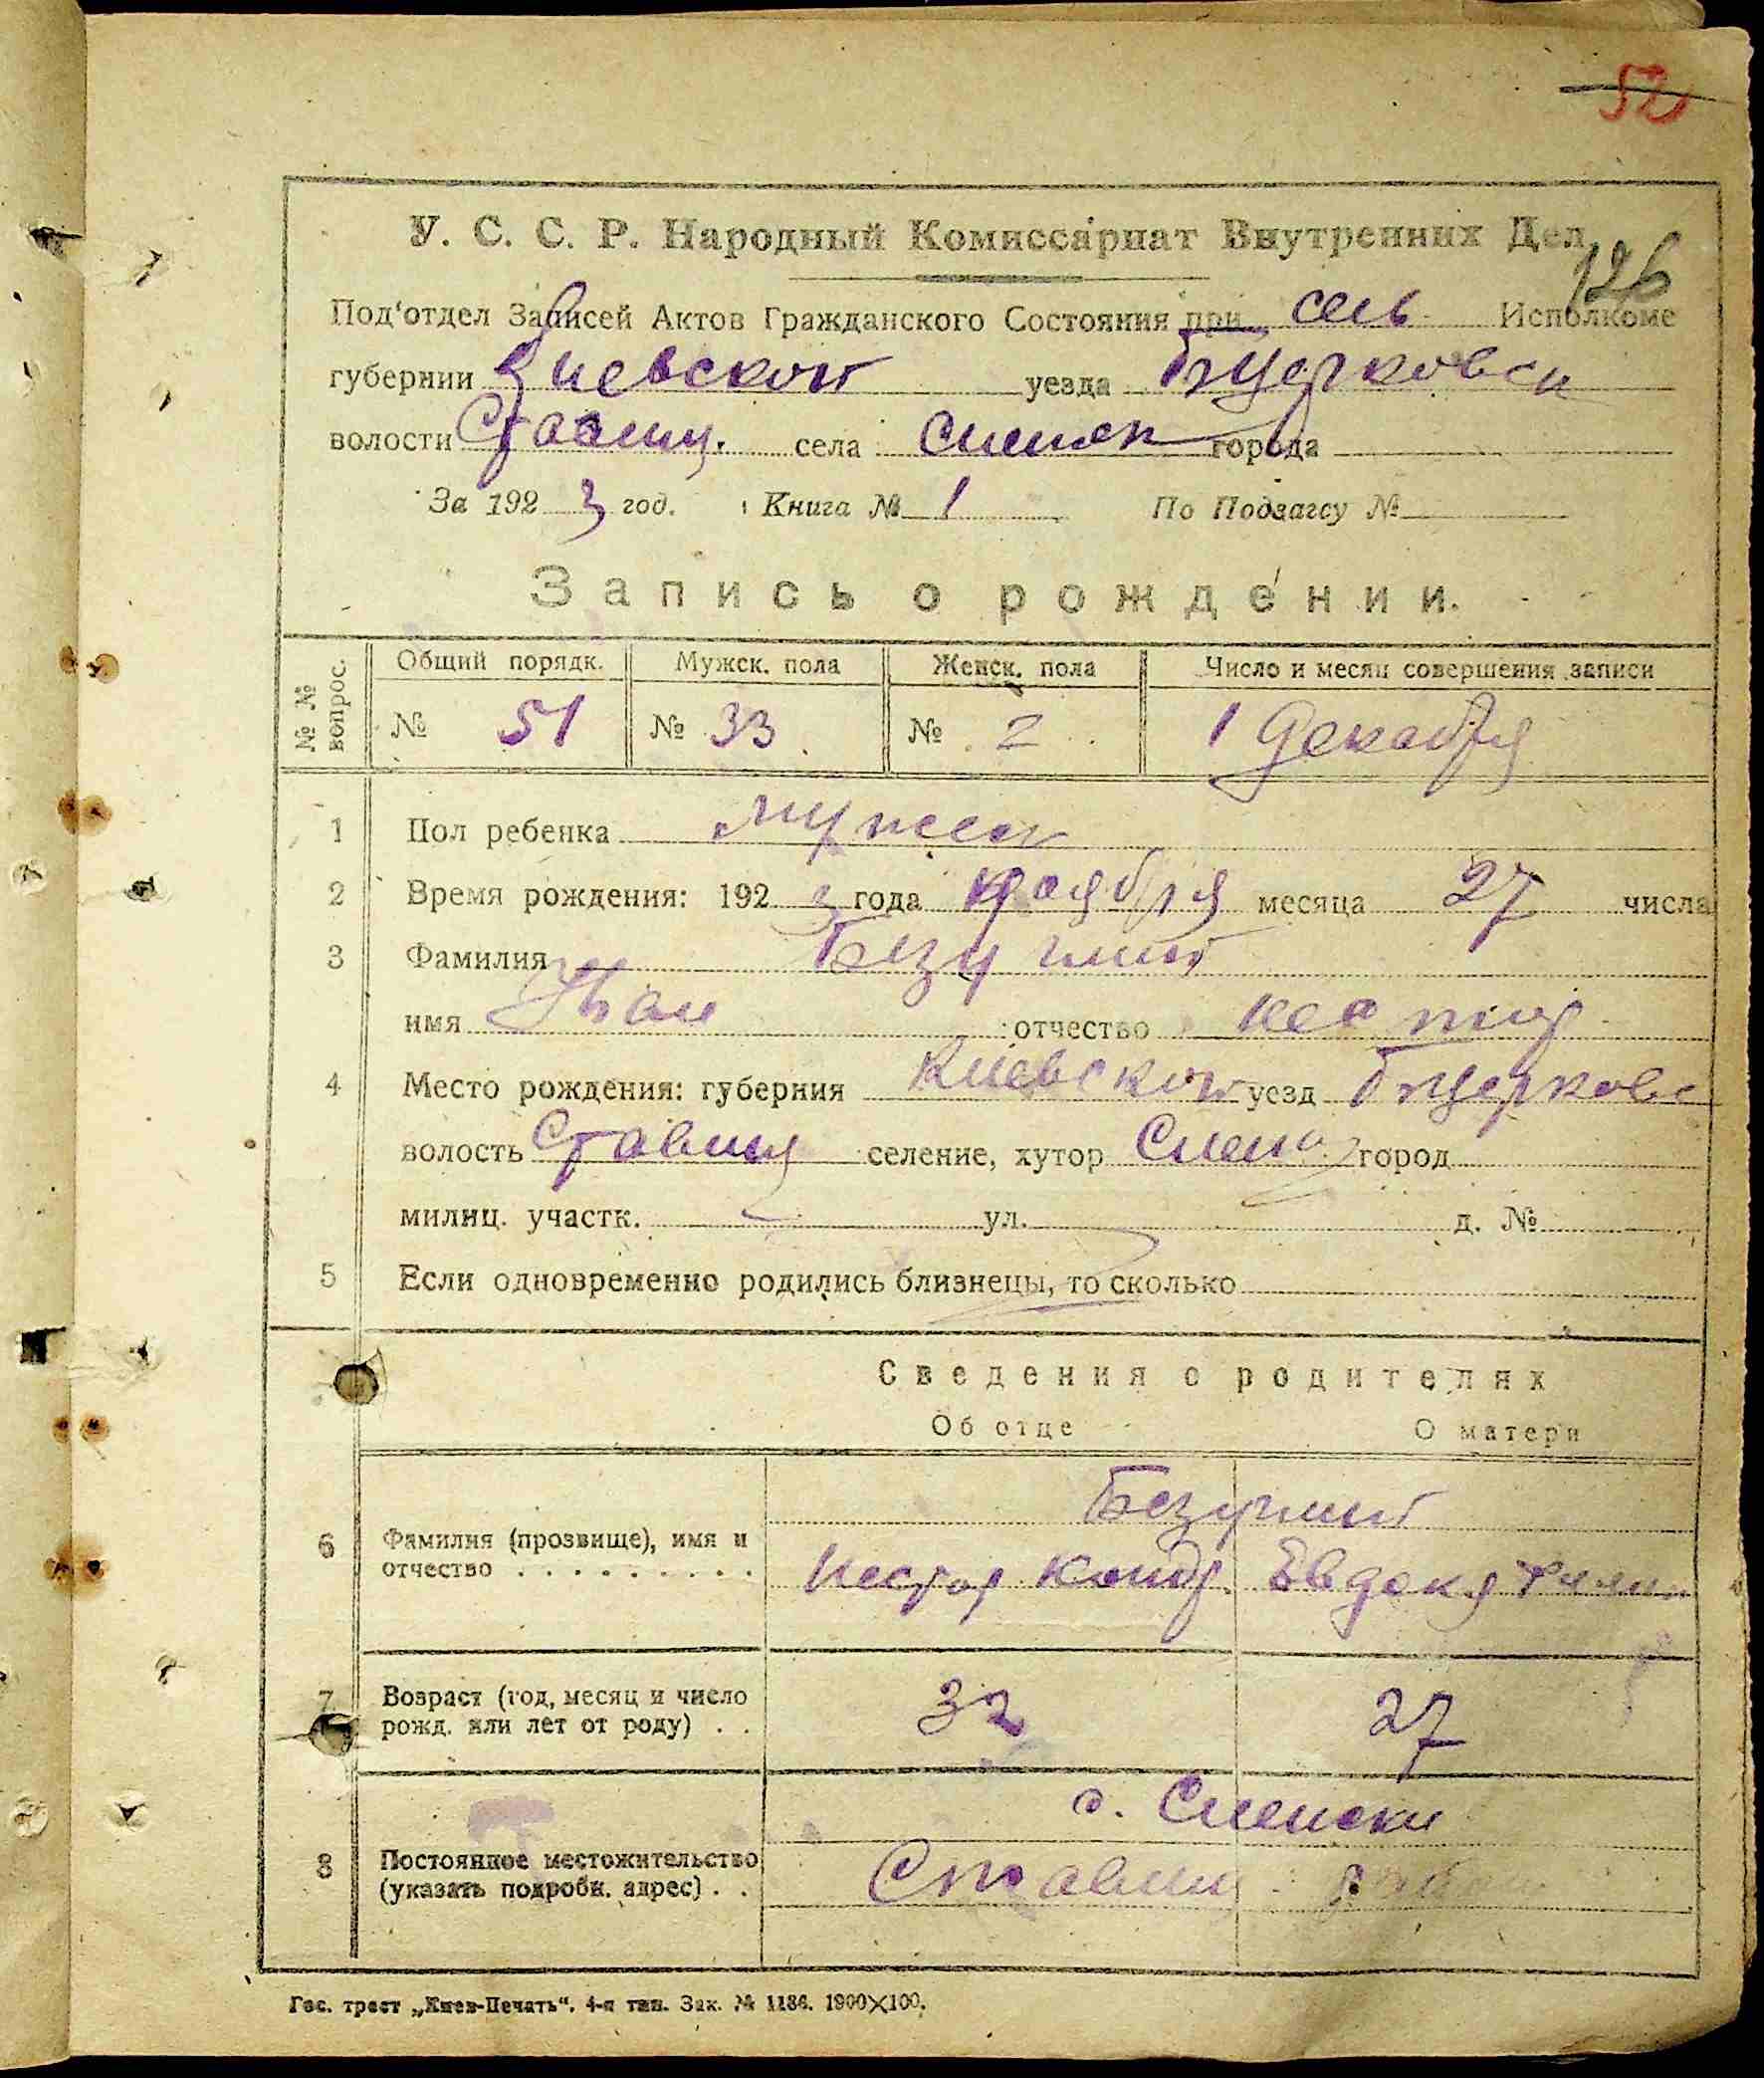 52
У. С. С. Р. Народный Комиссариат Внутренних Дел
126
Под'отдел Записей Актов Гражданского Состояния при сель Исполкоме
губернии Киевской уезда Бцерковск
волости Ставищ. села города
За 1923 год. Книга № 1 По Подзагсу №
Запись о рождении.
№ № вопрос. Общий порядк. Мужск. пола Женск. пола Число и месяц совершения записи
№ 51 № 33 № 1 Декабря
1 Пол ребенка мужской
2 Время рождения: 1923 года Ноября месяца 27 числа
3 Фамилия Безуглий
имя Иван отчество Нестор
4 Место рождения: губерния Киевской уезд Бцерковс
волость Ставищ селение, хутор город
милиц. участк. ул. д. №
5 Если одновременно родились близнецы, то сколько
Сведения о родителях
Об отце О матери
Безуглий
6 Фамилия (прозвище), имя и отчество Нестор Кондр. Евдокя
7 Возраст (год, месяц и число рожд. или лет от роду) 32 27
с.
8 Постоянное местожительство (указать подробн. адрес) Ставищ
Гос. трест „Киев-Печать“. 4-я тип. Зак. № 1186. 1900×100.